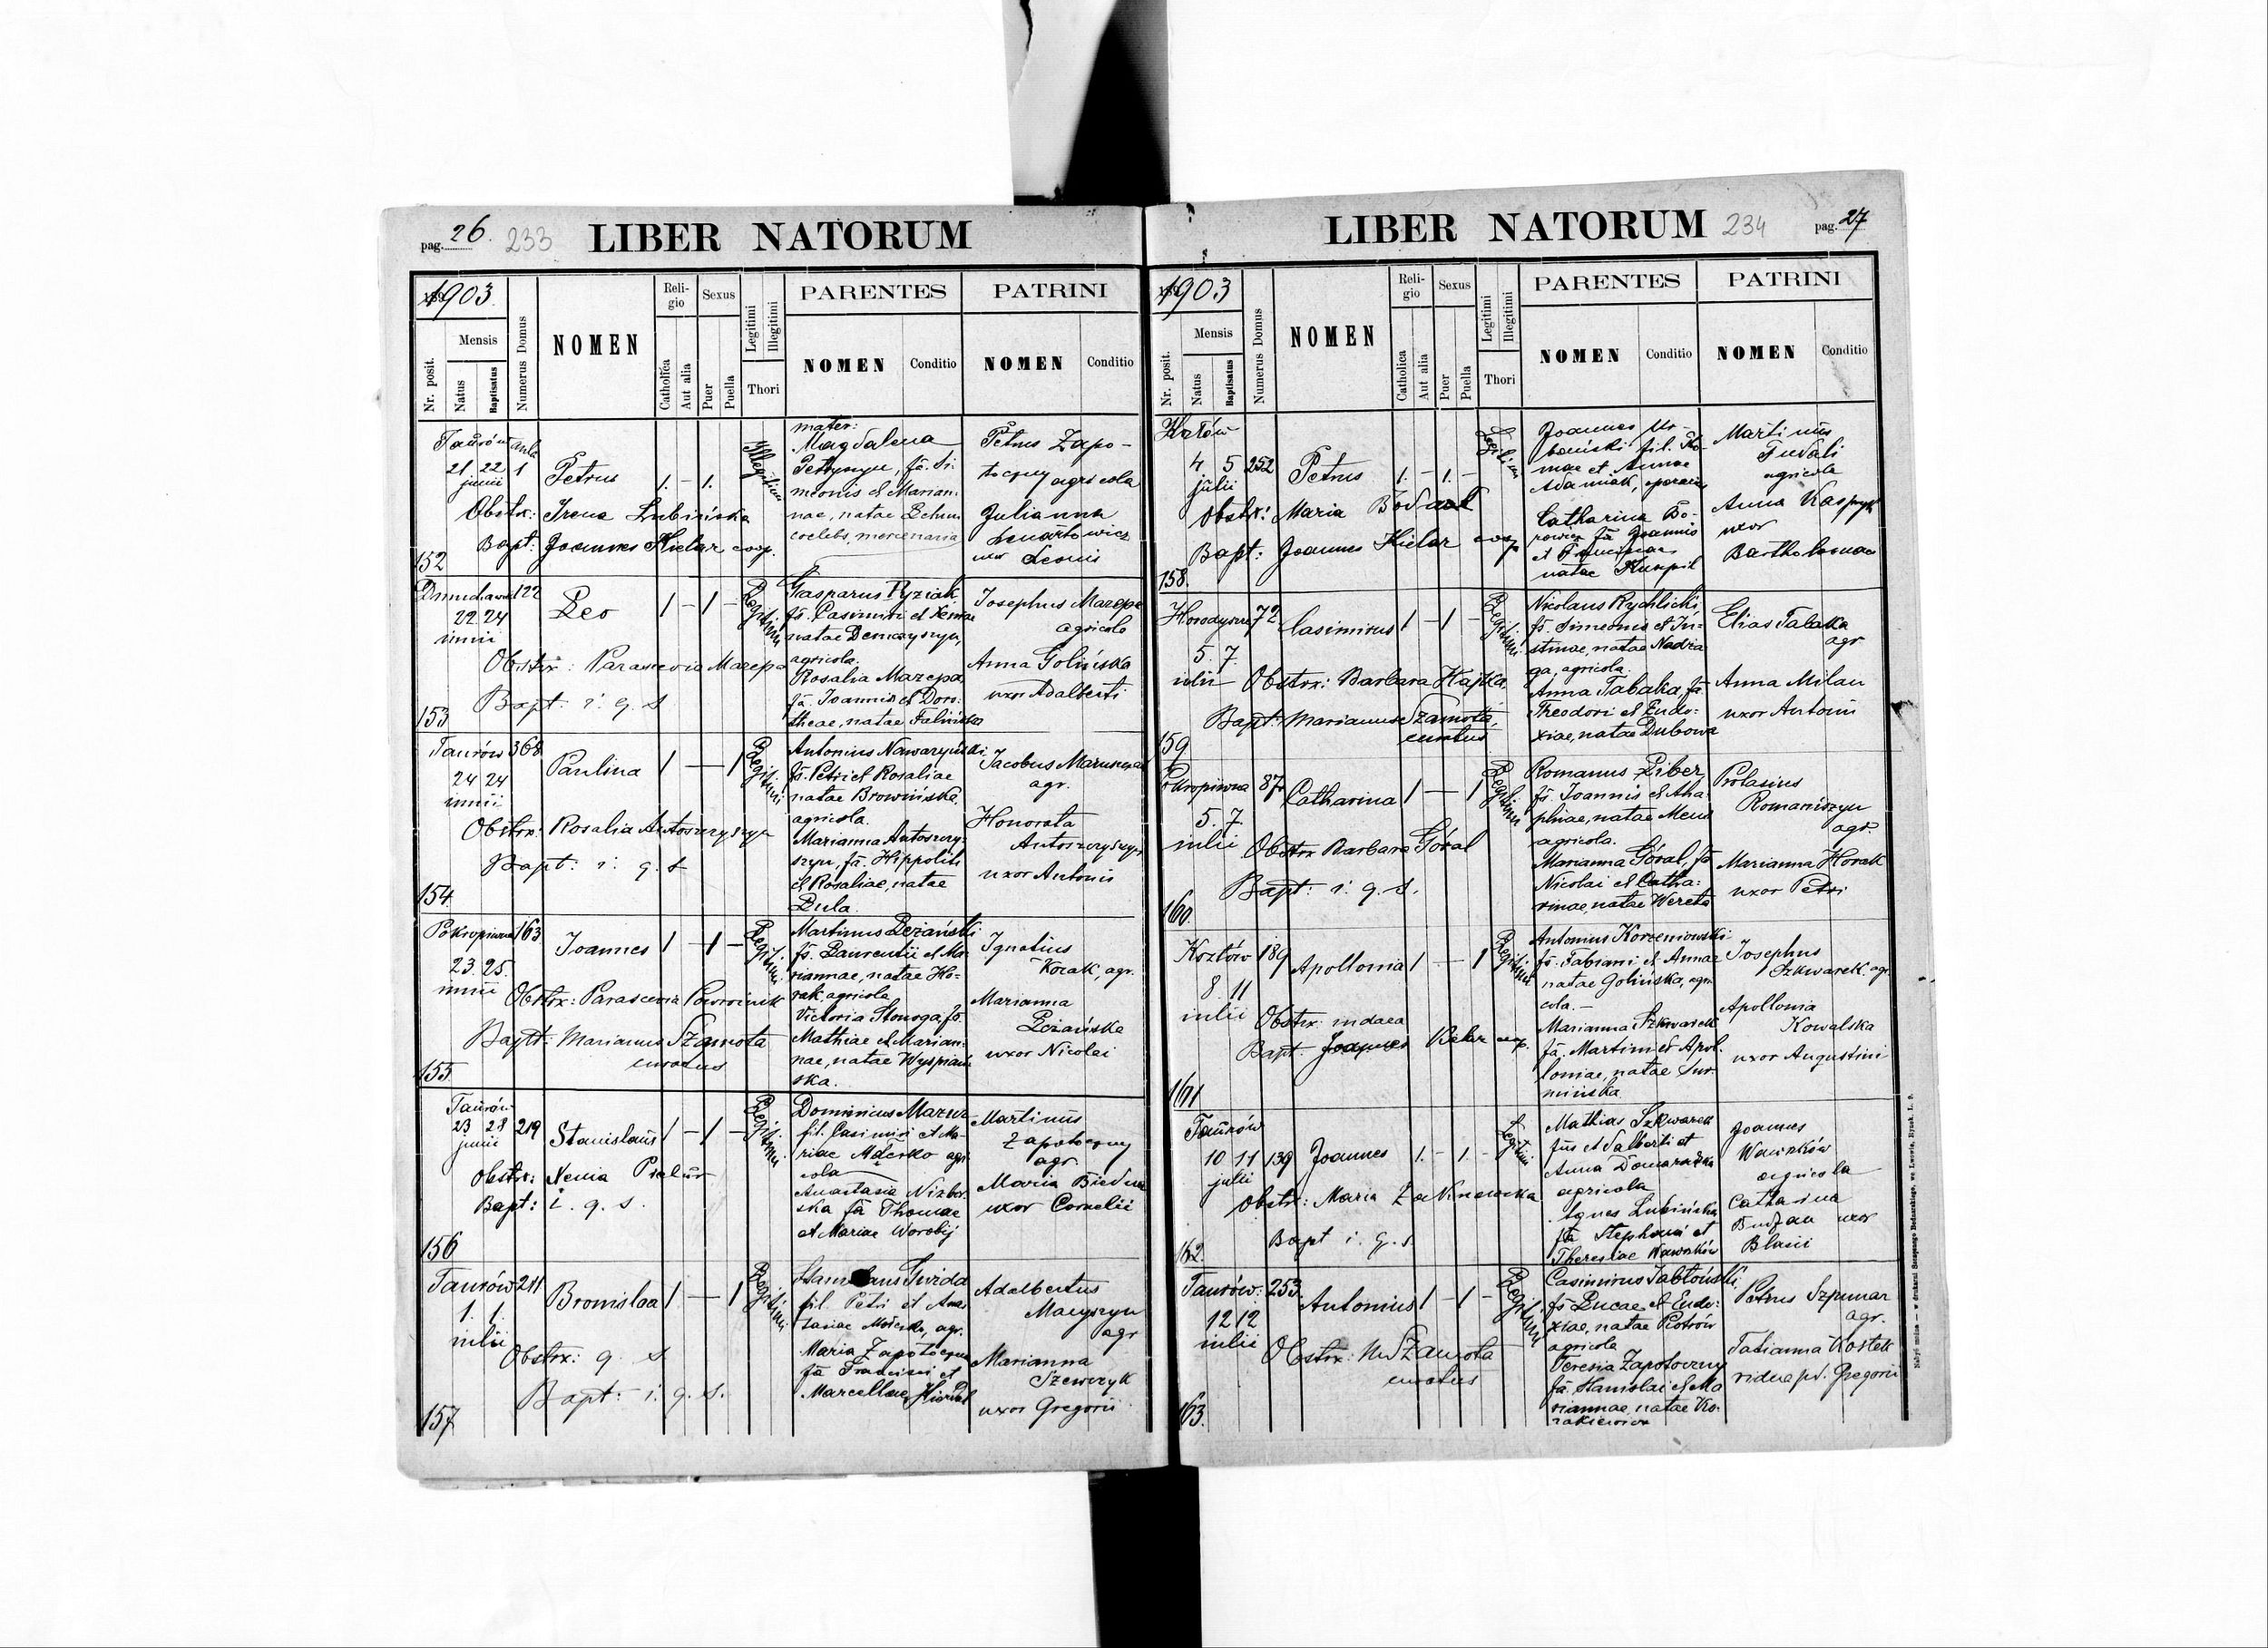 pag. 26. 233 LIBER NATORUM
1903.
Nr. posit.
Mensis
Natus
Baptisatus
Numerus Domus
NOMEN
Religio
Catholica
Aut alia
Sexus
Puer
Puella
Legitimi
Illegitimi
Thori
PARENTES
NOMEN
Conditio
PATRINI
NOMEN
Conditio
Taurów
21. 22 1
junii
Petrus
1. - 1.
Obstx: Irena Lubińska
Bapt: Joannes Kielar coop.
152
Illegitimi
mater:
Magdalena
fa. Si-
meonis et Marian-
nae, natae
coelebs, mercenaria
Petrus Zapo-
toczny agricola
Julianna
Lenartowicz
uxor Leonis
122
22. 24
iunii
Leo
1 - 1 -
Obstx: Parascevia Mazepa
Bapt: i. q. s
153
Legitimi
Gasparus Pyziak
fs. Casimiri et Xeniae
natae Demczyszyn,
agricola.
Rosalia Mazepa,
fa. Joannis et Doro-
theae, natae Falińska
Josephus Mazepa
agricola
Anna Golińska
uxor Adalberti
Taurów 368
24 24
iunii
Paulina
1 - - 1
Obstx: Rosalia Antoszczyszyn
Bapt: i. q. s
154
Legitimi
Antonius Nawaryński
fs. Petri et Rosaliae
natae Browińska,
agricola.
Marianna Antoszczy-
szyn, fa. Hippoliti
et Rosaliae, natae
Dula.
Jacobus
agr.
Honorata
Antoszczyszyn
uxor Antonii
Pokropiwna 163
23. 25.
iunii
Joannes
1 - 1 -
Obstx: Parascevia Powroźnik
Bapt: Marianus Szamota
curatus
155
Legitimi
Martinus Leżański
fs. Laurentii et Ma-
riannae, natae Ho-
rak, agricola
Victoria Stonoga, fa.
Mathiae et Marian-
nae, natae Wyspiań-
ska.
Ignatius
Kozak, agr.
Marianna
Leżańska
uxor Nicolai
Taurów
23 28 219
junii
Stanislaus
1 - 1 -
Obstx: Xenia
Bapt: i. q. s.
156
Legitimi
Dominicus Mazur
fil. Casimiri et Ma-
riae agri-
cola
Anastasia Nizbor-
ska fa Thomae
et Mariae Worobij
Martinus
Zapotoczny
agr.
Maria
uxor Cornelii
Taurów 211
1. 1.
iulii
Bronislaa
1 - - 1
Obstx: q. s
Bapt: i. q. s.
157
Legitimi
Gwizda
fil. Petri et Anas-
tasiae agr.
Maria Zapotoczna
fa Francisci et
Marcellae
Adalbertus
Maczyszyn
agr
Marianna
Szewczyk
uxor Gregorii
LIBER NATORUM 234 pag. 27
1903
Nr. posit.
Mensis
Natus
Baptisatus
Numerus Domus
NOMEN
Religio
Catholica
Aut alia
Sexus
Puer
Puella
Legitimi
Illegitimi
Thori
PARENTES
NOMEN
Conditio
PATRINI
NOMEN
Conditio
4. 5 252
julii
Petrus
1. - 1. -
Obstx: Maria
Bapt: Joannes Kielar coop
158.
Joannes Ur-
bański fil. Tho-
mae et Annae
Adamiak,
Catharina Bo-
fa Joannis
et Franciscae
natae
Martinus
agricola
Anna Kasprzyk
uxor
Bartholomaei
72
5. 7.
iulii
Casimirus
1 - 1 -
Obstx: Barbara Hajtka
Bapt: Marianus Szamota,
curatus
159
Legitimi
Nicolaus Rychlicki,
fs. Simeonis et Ju-
stinae, natae Nadra-
ga, agricola.
Anna Tabaka, fa
Theodori et Eudo-
xiae, natae Dubowa
Elias Tabaka
agr
Anna Milan
uxor Antonii
Pokropiwna 87
5. 7.
iulii
Catharina
1 - - 1
Obstx Barbara Góral
Bapt: i. q. s.
160.
Legitimi
Romanus Ziber,
fs. Joannis et Aha-
phiae, natae
agricola.
Marianna Góral, fa
Nicolai et Catha-
rinae, natae Wereta
Protasius
Romaniszyn
agr.
Marianna Horak
uxor Petri
Kozłów 189
8. 11
iulii
Apollonia
1 - - 1
Obstx: indaea
Bapt: Joannes Kielar coop.
161
Legitimi
Antonius Korzeniowski
fs. Fabiani et Annae
natae Golińska, agri-
cola. -
Marianna Szkwarek
fa. Martini et Apol-
loniae, natae Sur-
mińska
Josephus
Szkwarek agr.
Apollonia
Kowalska
uxor Augustini
Taurów
10 11 139
julii
Joannes
1. - 1. -
Obstx: Maria
Bapt i. q. s
162
Legitimi
Mathias Szkwarek
fius Adalberti et
Anna
agricola
Agnes Lubińska
fa Stephani et
Theresiae Wawrków
Joannes
Wawrków
agricola
Catharina
uxor
Blasii
Taurów 253
12 12
iulii
Antonius
1 - 1 -
Obstx: M Szamota
curatus
163.
Legitimi
Casimirus Jabłoński,
fs Lucae et Eudo-
xiae, natae Piotrów
agricola
Teresia Zapotoczny
fa. Stanislai et Ma
riannae, natae Ko-
Petrus Szpunar
agr.
Tatianna Kostek
vidua p. Gregorii